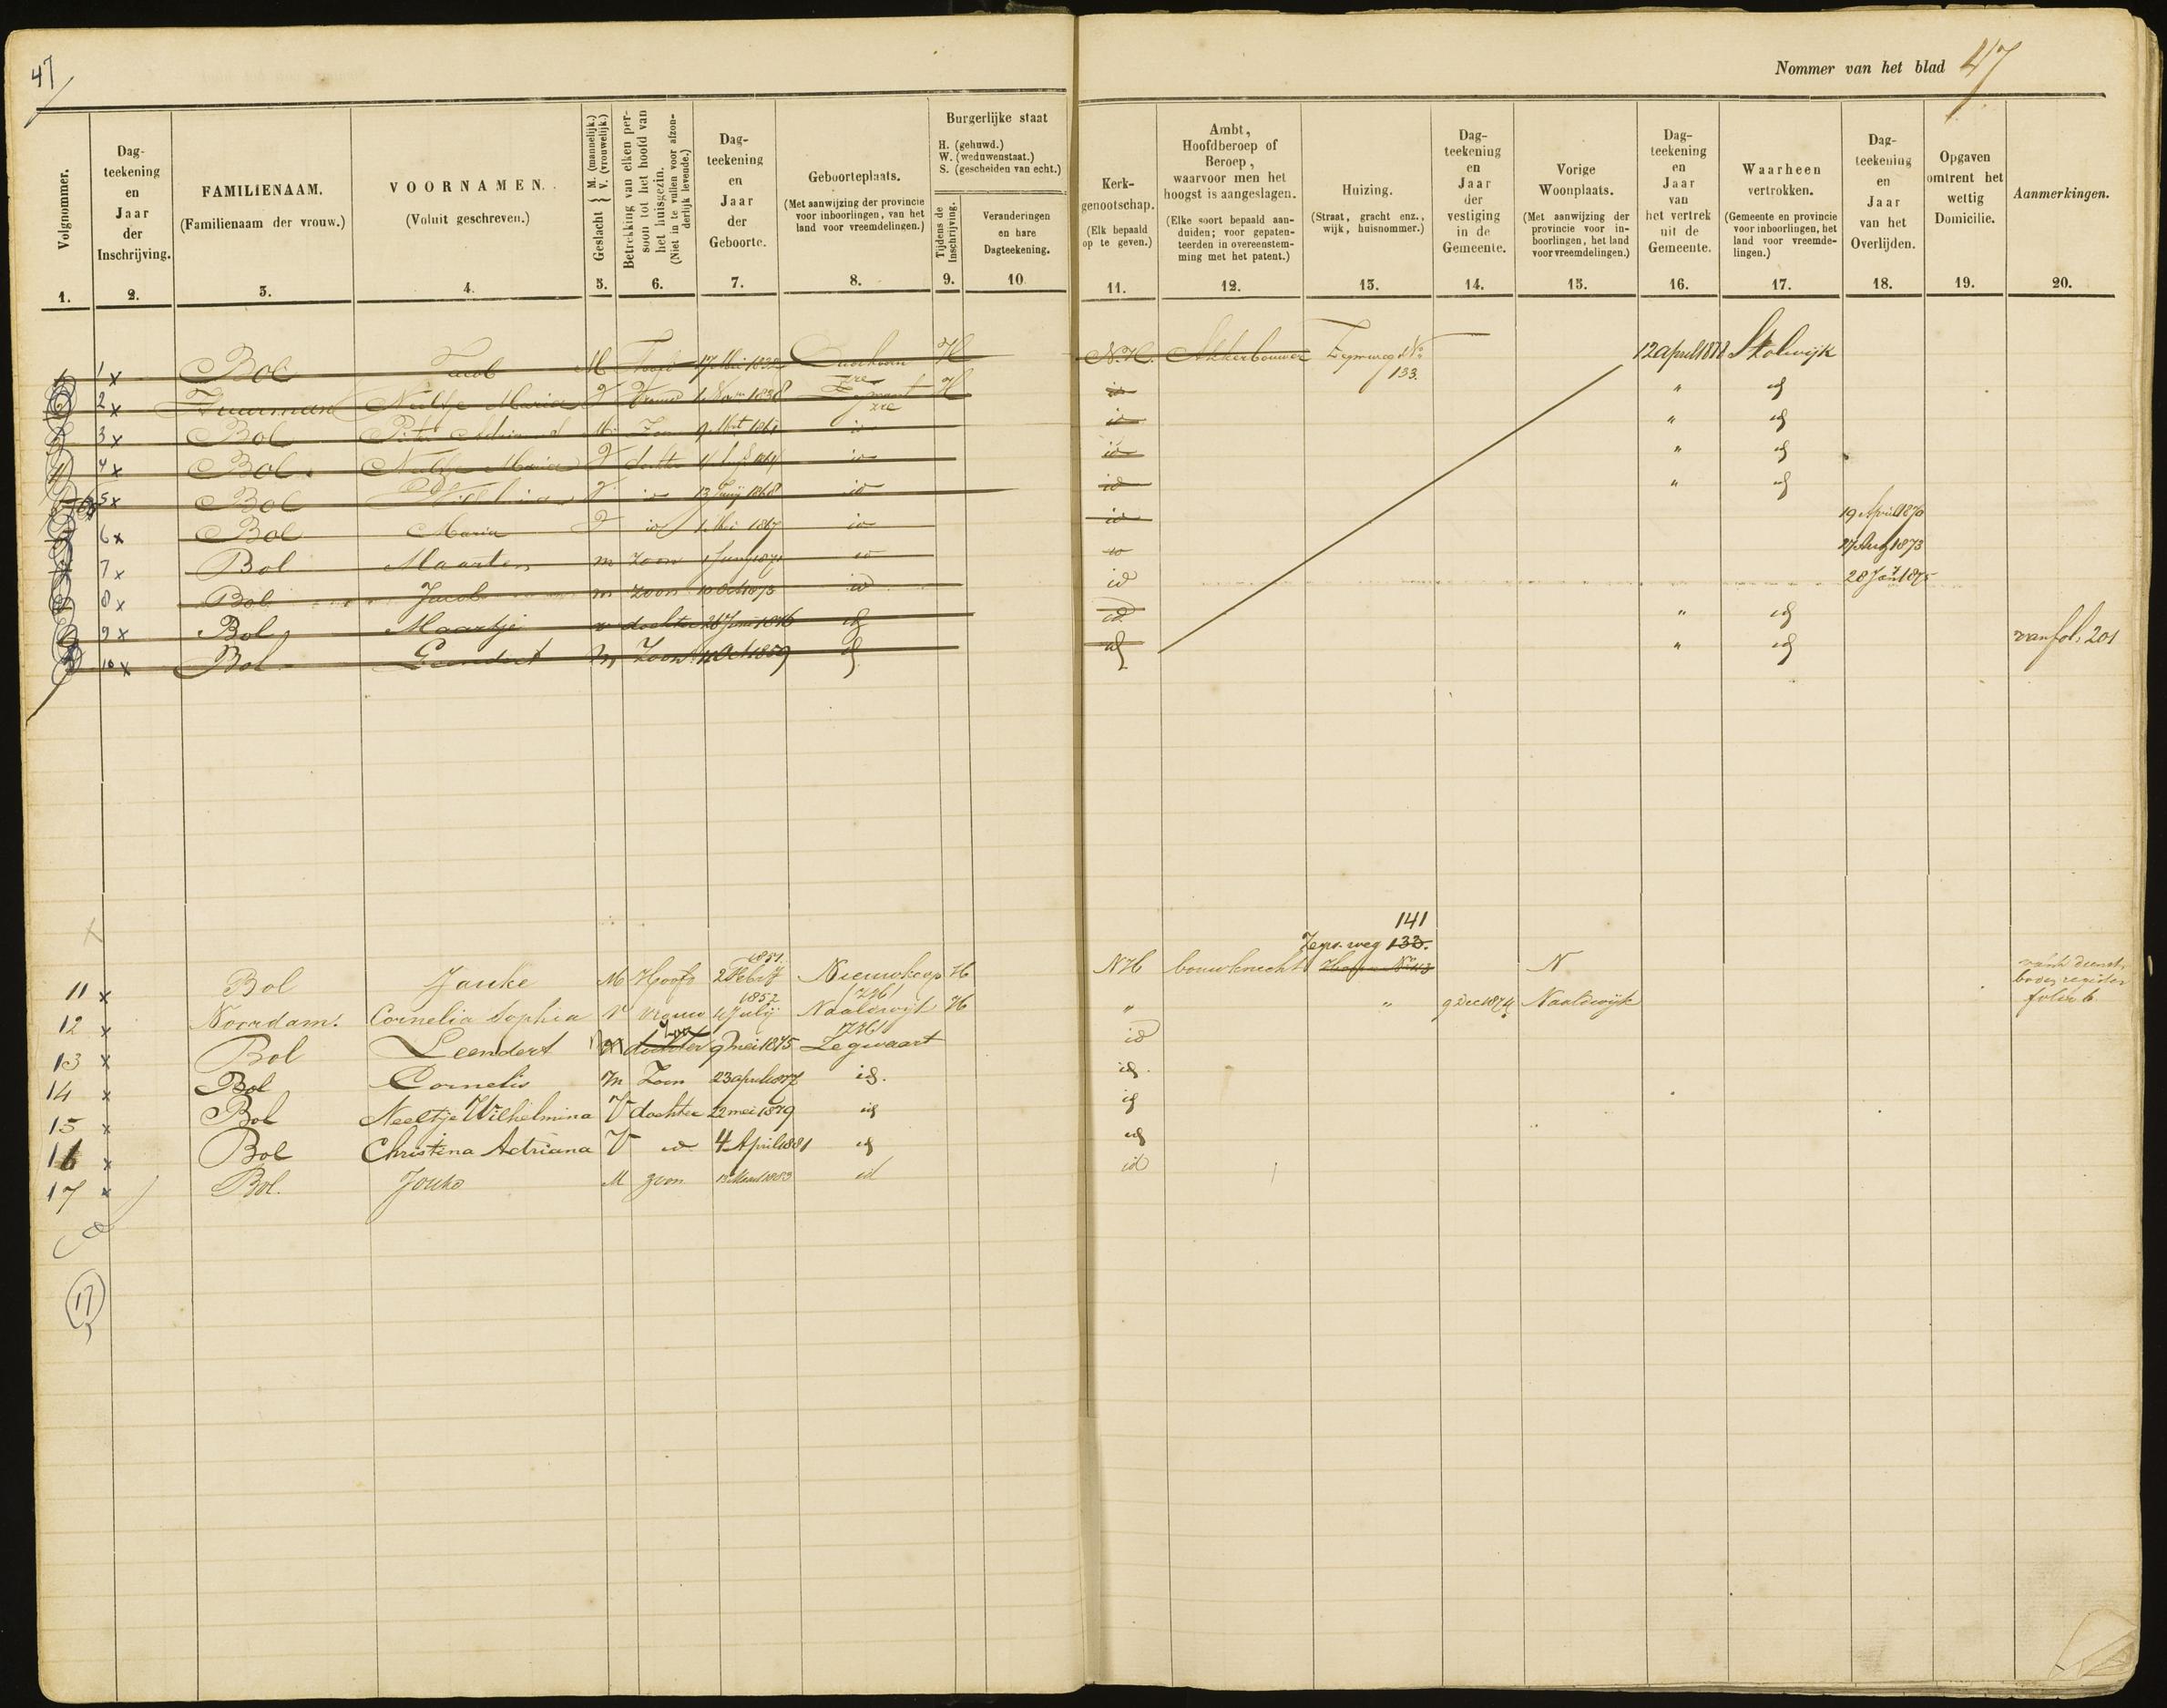 47
Nommer van het blad 47
Volgnommer.
1.
Dag-
teekening
en
Jaar
der
Inschrijving.
2.
FAMILIENAAM.
(Familienaam der vrouw.)
3.
VOORNAMEN.
(Voluit geschreven.)
4.
Geslacht { M. (mannelijk.) V. (vrouwelijk.)
5.
Betrekking van elken per-
soon tot het hoofd van
het huisgezin.
(Niet in te vullen voor afzon-
derlijk levende.)
6.
Dag-
teekening
en
Jaar
der
Geboorte.
7.
Geboorteplaats.
(Met aanwijzing der provincie
voor inboorlingen, van het
land voor vreemdelingen.)
8.
Burgerlijke staat
H. (gehuwd.)
W. (weduwenstaat.)
S. (gescheiden van echt.)
Tijdens de
Inschrijving.
9.
Veranderingen
en hare
Dagteekening.
10
Kerk-
genootschap.
(Elk bepaald
op te geven.)
11.
Ambt,
Hoofdberoep of
Beroep,
waarvoor men het
hoogst is aangeslagen.
(Elke soort bepaald aan-
duiden; voor gepaten-
teerden in overeenstem-
ming met het patent.)
12.
Huizing.
(Straat, gracht enz.,
wijk, huisnommer.)
13.
Dag-
teekening
en
Jaar
der
vestiging
in de
Gemeente.
14.
Vorige
Woonplaats.
(Met aanwijzing der
provincie voor in-
boorlingen, het land
voor vreemdelingen.)
15.
Dag-
teekening
en
Jaar
van
het vertrek
uit de
Gemeente.
16.
Waarheen
vertrokken.
(Gemeente en provincie
voor inboorlingen, het
land voor vreemde-
lingen.)
17.
Dag-
teekening
en
Jaar
van het
Overlijden.
18.
Opgaven
omtrent het
wettig
Domicilie.
19.
Aanmerkingen.
20.
1 x Bol Jacob M Hoofd 17 Mei 1832 H N.H. Akkerbouwer Zegwweg No 133. 12 april 1878 Stolwijk
2 x Neeltje Maria V Vrouw 1838 Zegwaart H id " id
3 x Bol M Zoon id id " id
4 x Bol Neeltje Maria V dochter id id " id
5 x Bol V id 13 Junij 1868 id id " id
6 x Bol Maria V id 1 Mei 1867 id id 19 April 1870
7 x Bol Maarten m zoon id id 27 Aug 1873
8 x Bol Jacob m zoon 10 Oct 1873 id id 28 Jan 1875
9 x Bol Maartje v dochter 1876 id id " id
10 x Bol Leendert M Zoon 11 Oct 1859 id id " id van fol. 201
11 x Bol Jouke M Hoofd 2 Febr 1851. Nieuwkoop H NH bouwknecht Zegw. weg 133. 141 N
12 x Noordam. Cornelia Sophia V vrouw Julij 1852 Naaldwijk H " " 9 Dec 1874 Naaldwijk folio 6.
13 x Bol Leendert M dochter Zoon 9 mei 1875 Zegwaart id
14 x Bol Cornelis m Zoon 23 april 1877 id. id.
15 x Bol Neeltje Wilhelmina V dochter 22 mei 1879 id id
16 x Bol Christina Adriana V id 4 April 1881 id id
17 x Bol. Jouke M zoon 1883 id id
17